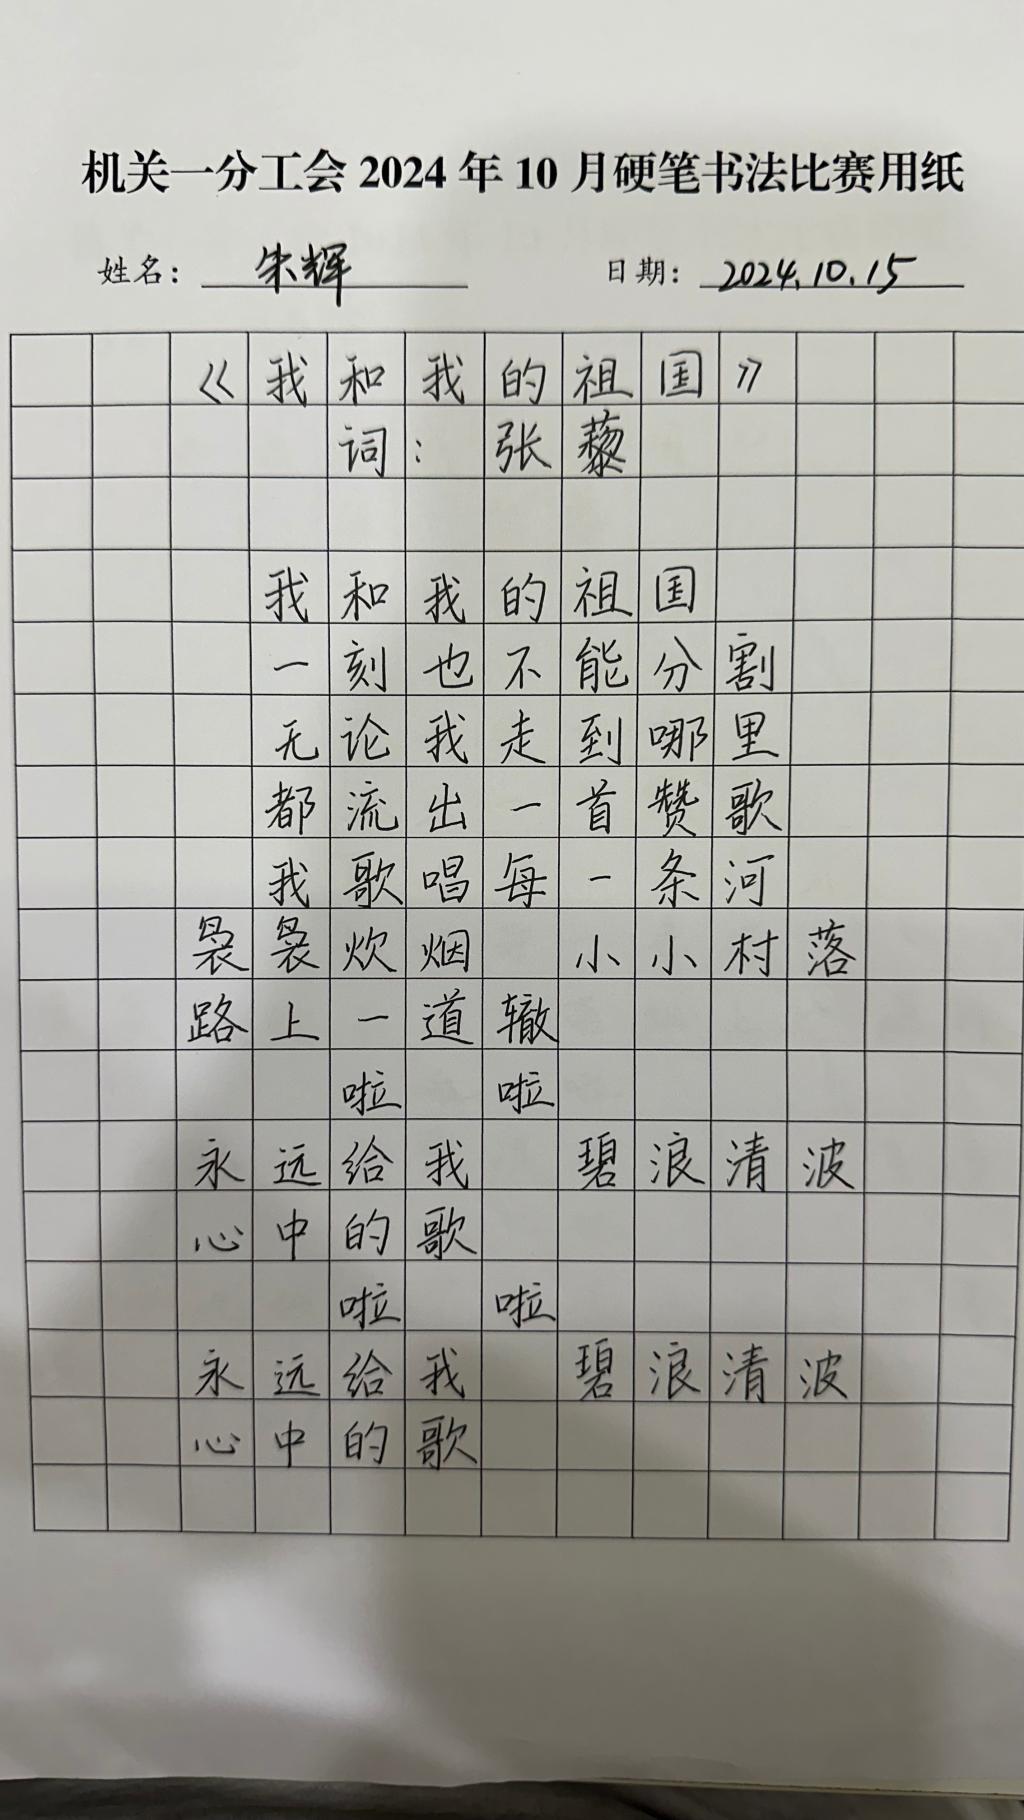 机关一分工会2024年10月硬笔书法比赛用纸
姓名：朱辉 日期：2024.10.15
《我和我的祖国》
词：张藜
我和我的祖国
一刻也不能分割
无论我走到哪里
都流出一首赞歌
我歌唱每一条河
袅袅炊烟 小小村落
路上一道辙
啦 啦
永远给我 碧浪清波
心中的歌
啦 啦
永远给我 碧浪清波
心中的歌